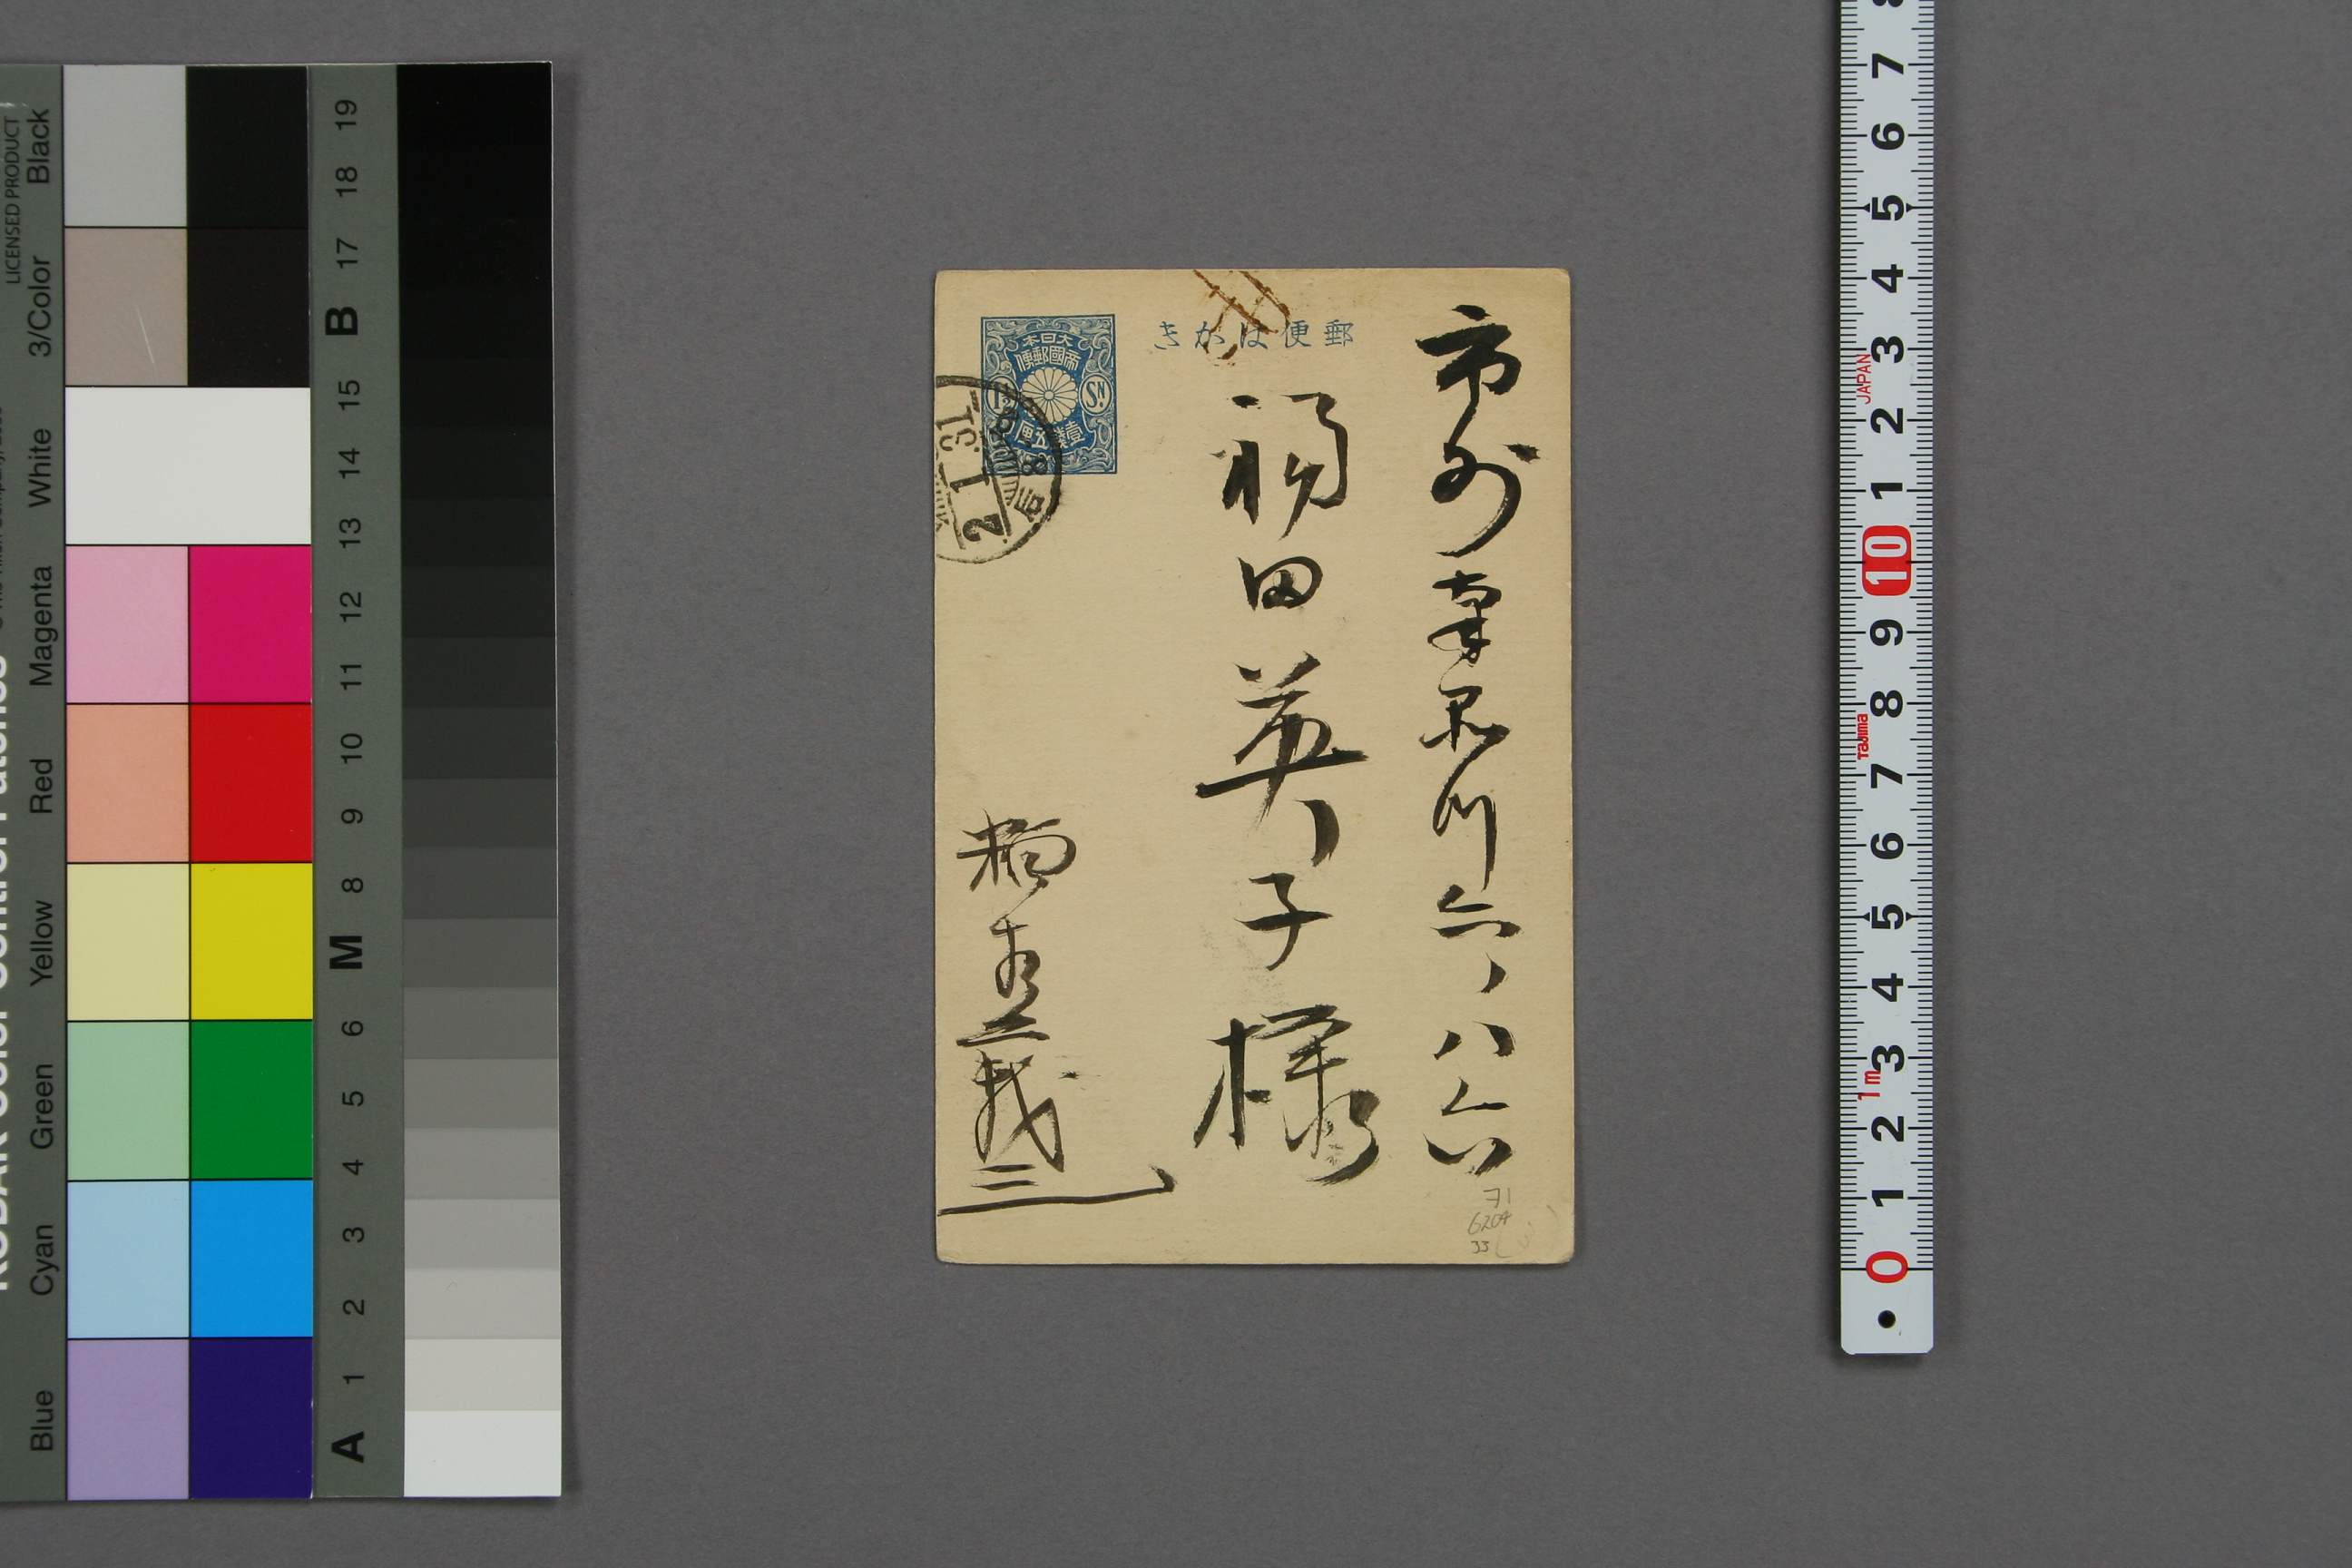 郵便はかき
大日本
帝國郵便
1½
SN
壹錢五厘
2 1 31
市外南品川六ノ八六
福田英子様
稲垣義三
71
6204
33
LICENSED PRODUCT
Black
3/Color
White
Magenta
Red
Yellow
Green
Cyan
Blue
19
18
17
B
15
14
13
12
11
10
9
8
M
6
5
4
3
2
1
A
7
6
5
4
3
JAPAN
2
1
10
9
8
Tajima
7
6
5
4
3
1m
2
1
0